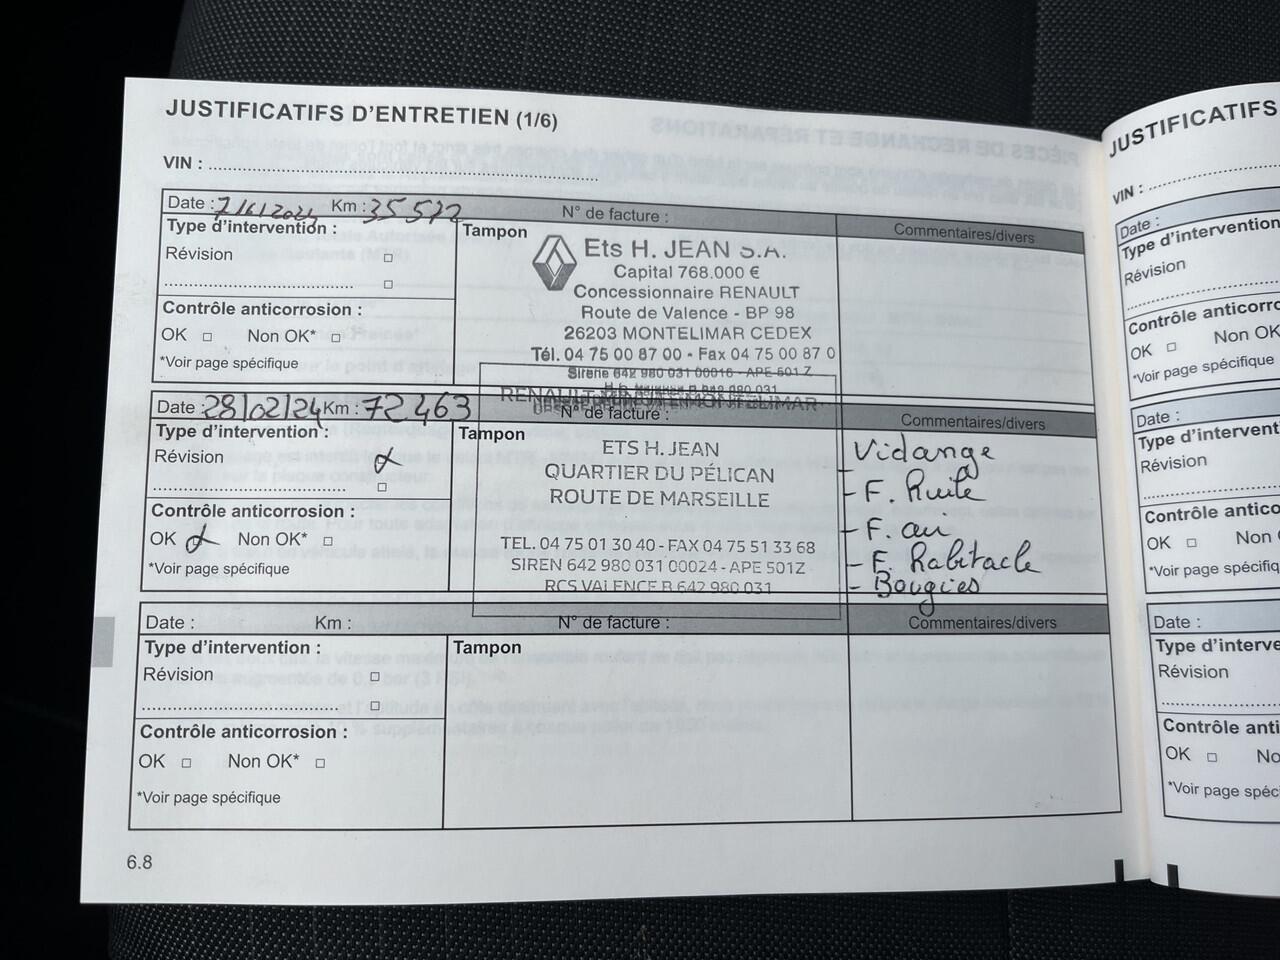 JUSTIFICATIFS D'ENTRETIEN (1/6)
VIN :
Date : Km : 35 572 N° de facture : Commentaires/divers
Type d'intervention :
Révision
Contrôle anticorrosion :
OK Non OK*
*Voir page spécifique
Tampon
Ets H. JEAN S.A.
Capital 768.000 €
Concessionnaire RENAULT
Route de Valence - BP 98
26203 MONTELIMAR CEDEX
Tél. 04 75 00 87 00 - Fax 04 75 00 87 0
Sirene 642 980 031 00016 - APE 501 Z
Date : 28/02/24 Km : 72 463 N° de facture : Commentaires/divers
Type d'intervention :
Révision
Contrôle anticorrosion :
OK Non OK*
*Voir page spécifique
Tampon
RENAULT MONTELIMAR
ETS H. JEAN
QUARTIER DU PÉLICAN
ROUTE DE MARSEILLE
TEL. 04 75 01 30 40 - FAX 04 75 51 33 68
SIREN 642 980 031 00024 - APE 501Z
RCS VALENCE B 642 980 031
Vidange
- F. Huile
- F. air
- F. Habitacle
- Bougies
Date : Km : N° de facture : Commentaires/divers
Type d'intervention :
Révision
Contrôle anticorrosion :
OK Non OK*
*Voir page spécifique
Tampon
6.8
JUSTIFICATIFS
VIN :
Date :
Type d'intervention
Révision
Contrôle anticorr
OK Non OK
*Voir page spécifique
Date :
Type d'intervent
Révision
Contrôle antico
OK Non
*Voir page spécifiq
Date :
Type d'interve
Révision
Contrôle anti
OK No
*Voir page spéc